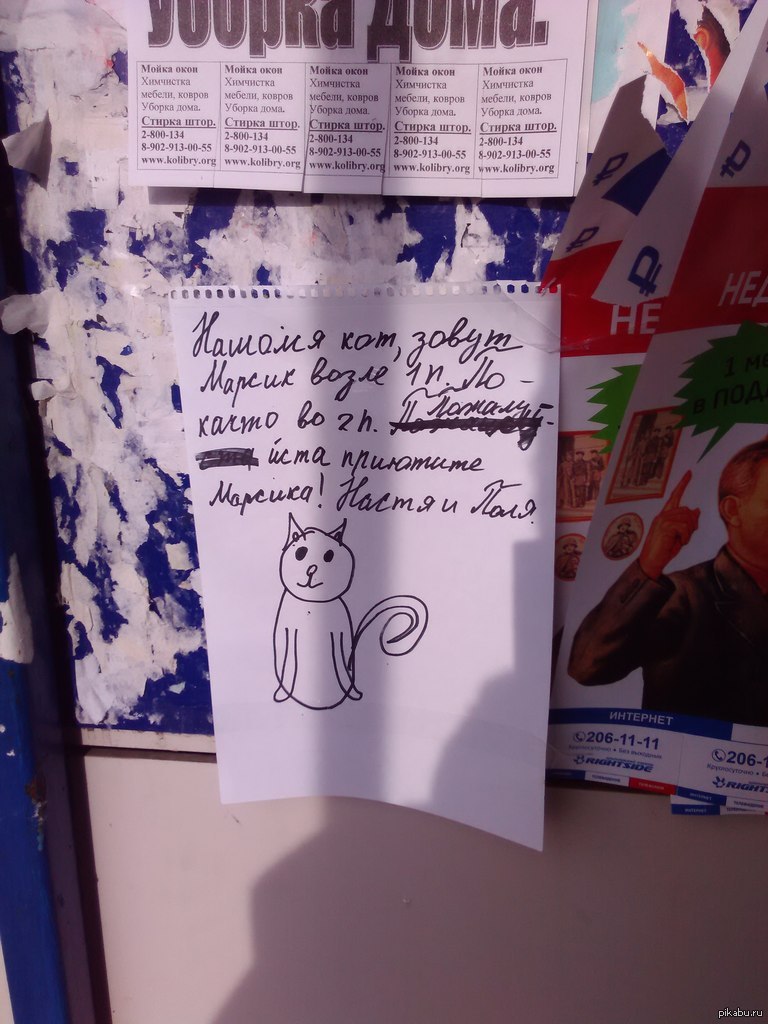 Уборка дома.
Мойка окон Мойка окон Мойка окон Мойка окон Мойка окон
Химчистка Химчистка Химчистка Химчистка Химчистка
мебели, ковров мебели, ковров мебели, ковров мебели, ковров мебели, ковров
Уборка дома. Уборка дома. Уборка дома. Уборка дома. Уборка дома.
Стирка штор. Стирка штор. Стирка штор. Стирка штор. Стирка штор.
2-800-134 2-800-134 2-800-134 2-800-134 2-800-134
8-902-913-00-55 8-902-913-00-55 8-902-913-00-55 8-902-913-00-55 8-902-913-00-55
www.kolibry.org www.kolibry.org www.kolibry.org www.kolibry.org www.kolibry.org
Нашолся кот, зовут
Марсик возле 1 п. По-
качто во 2 п. Пожалу-
йста приютите
Марсика! Настя и Поля.
₽ ₽
₽ ₽
НЕ НЕД
1 ме
в ПОД
ИНТЕРНЕТ
206-11-11
Круглосуточно • Без выходных
RIGHTSIDE
206-1
Круглосуточно
RIGHTS
pikabu.ru